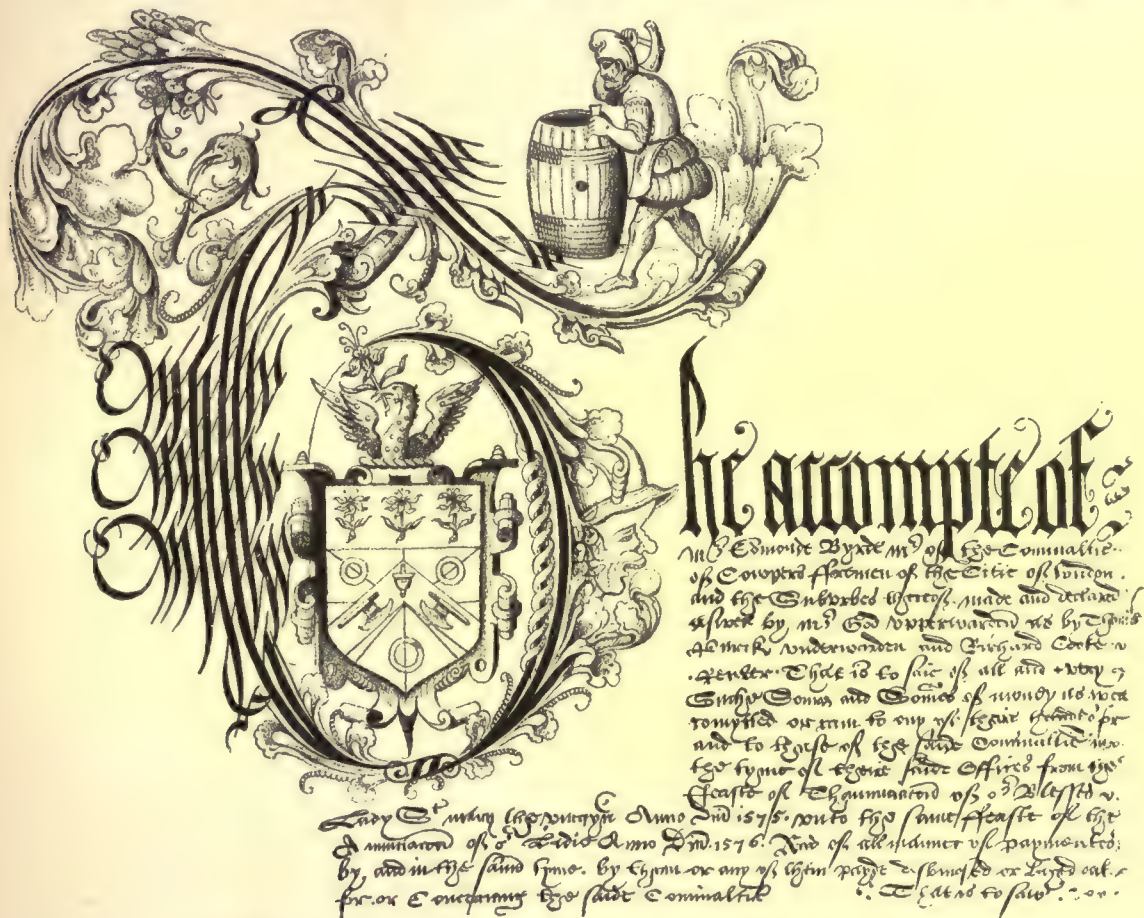 The accompte of
Mr Edmonde Byrde mr of the Cominaltie
of Cowpers ffreemen of the Citie of london
and the Suburbes thereof. made and declared
aswell by mr Upperwarden as by Thomas
underwarden and Richard
Renter. That is to saie of all and every
Suche Somes and Somes of money as
or cam to any of their
and to thuse of the saide Cominaltie
the tyme of their saide Offices from the
ffeaste of Thannunciacon of or Blessed
Lady St mary the virgyn Anno Dni 1575. unto the same ffeaste of the
Annunciacon of or Ladie Anno Dni. 1576. And of all maner of paymentes
by, and in the same tyme. by them or any of them payde disbursed or layed out
for or Concerning the saide Cominaltie That is to saie